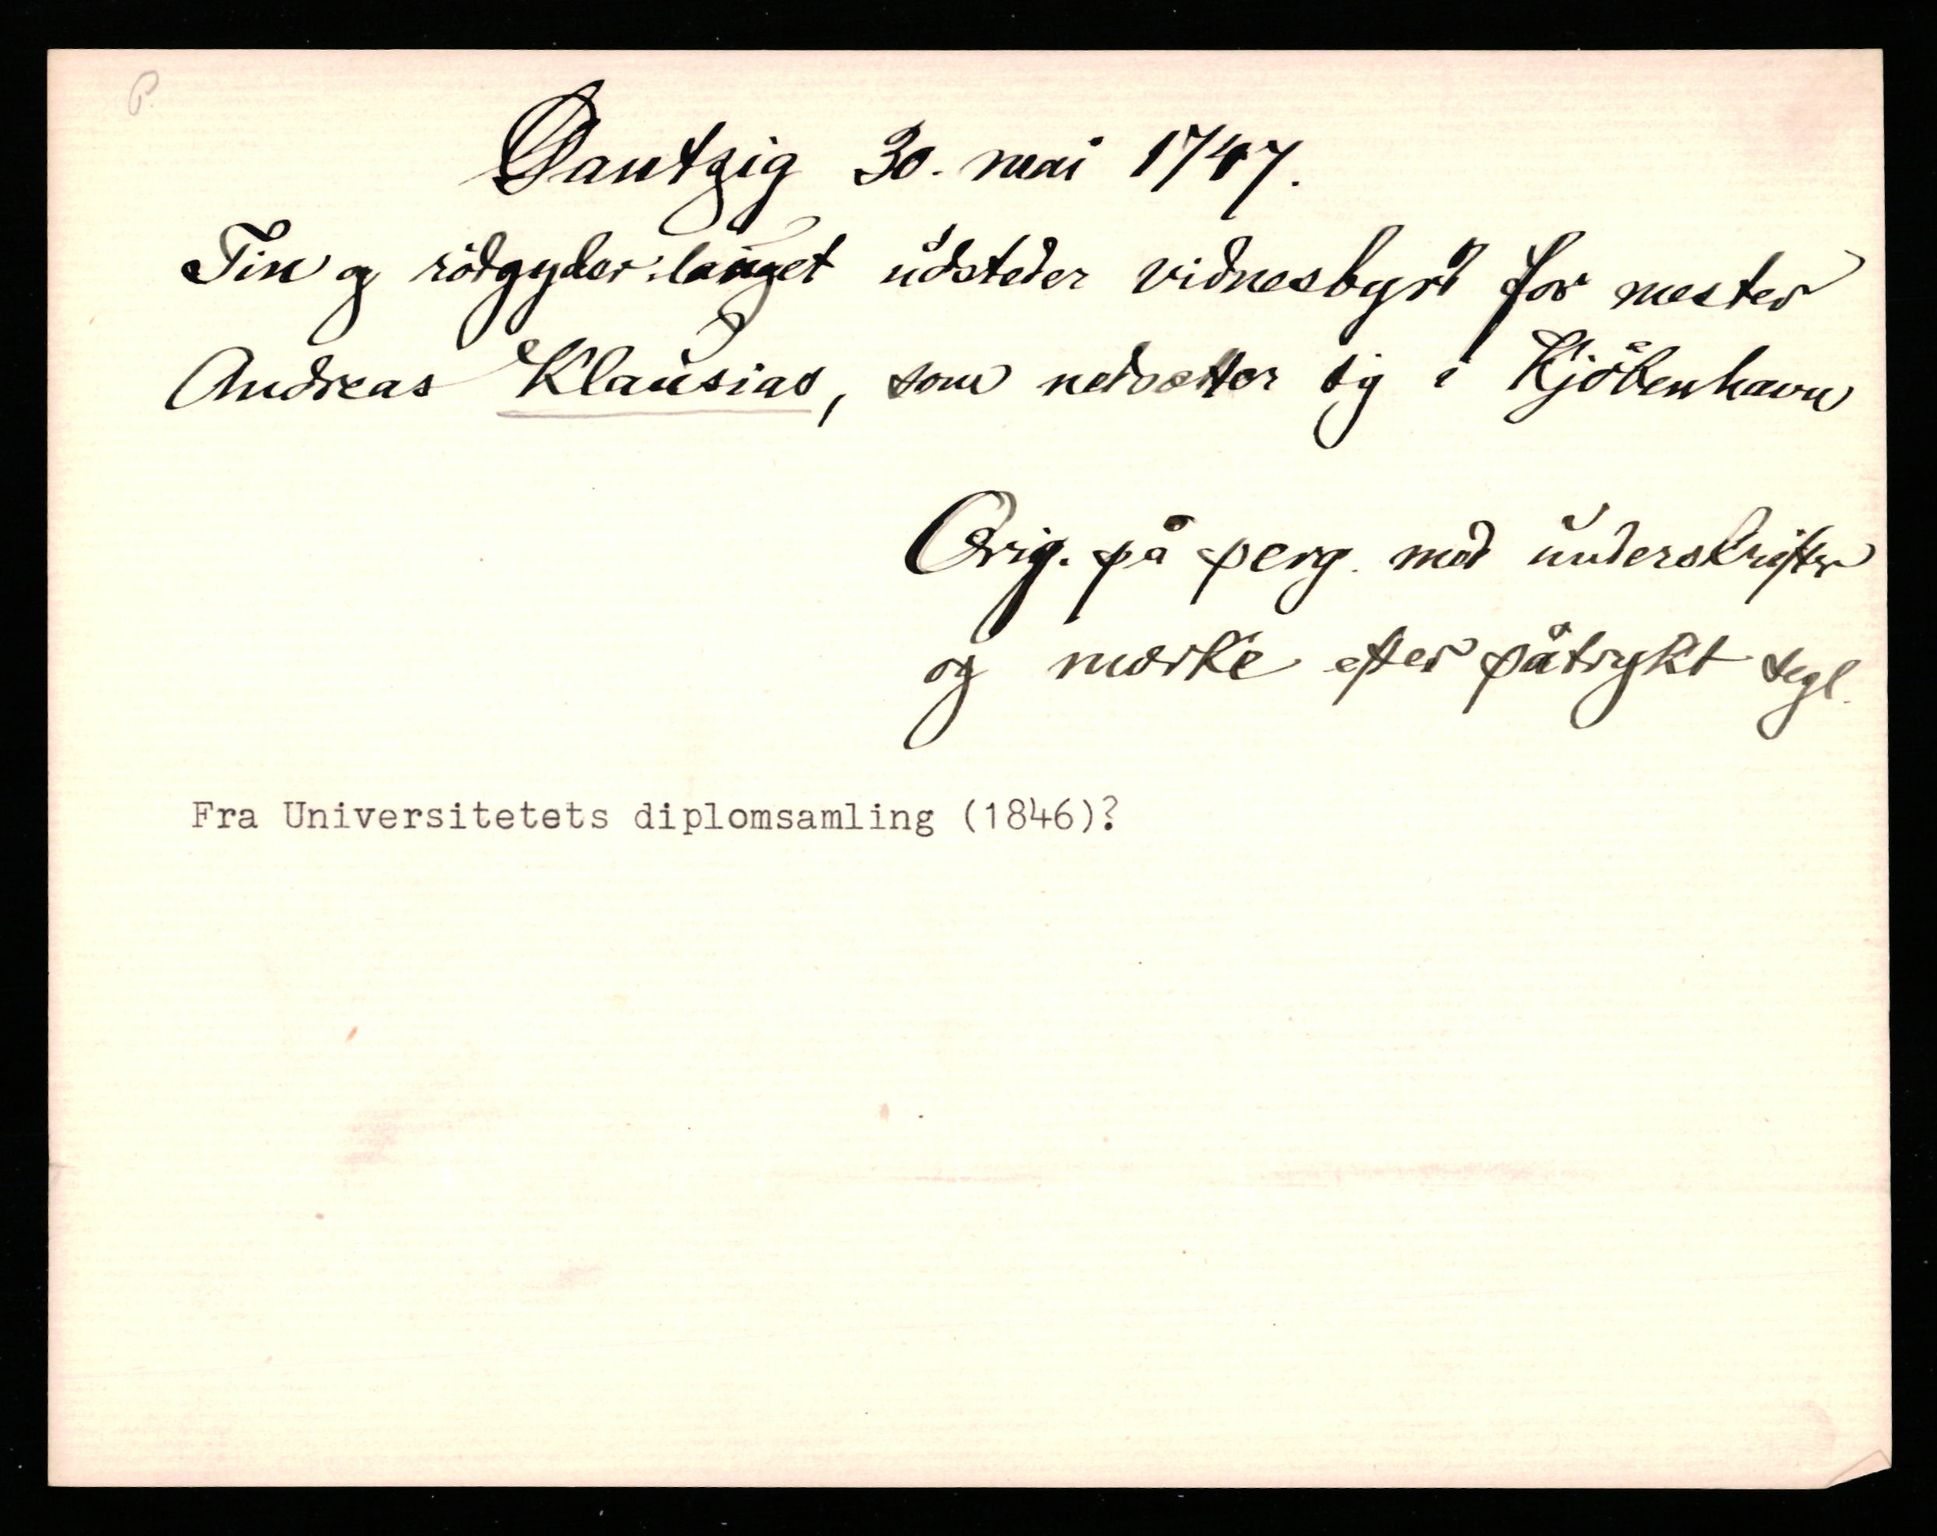 P.
Dantzig 30. mai 1747.
Tin og rödgyder-lauget udsteder vidnesbyrd for mester
Andreas Klausias, som nedsætter sig i Kjöbenhavn
Orig. på perg. med underskrifter
og mærke efter påtrykt segl.
Fra Universitetets diplomsamling (1846)?